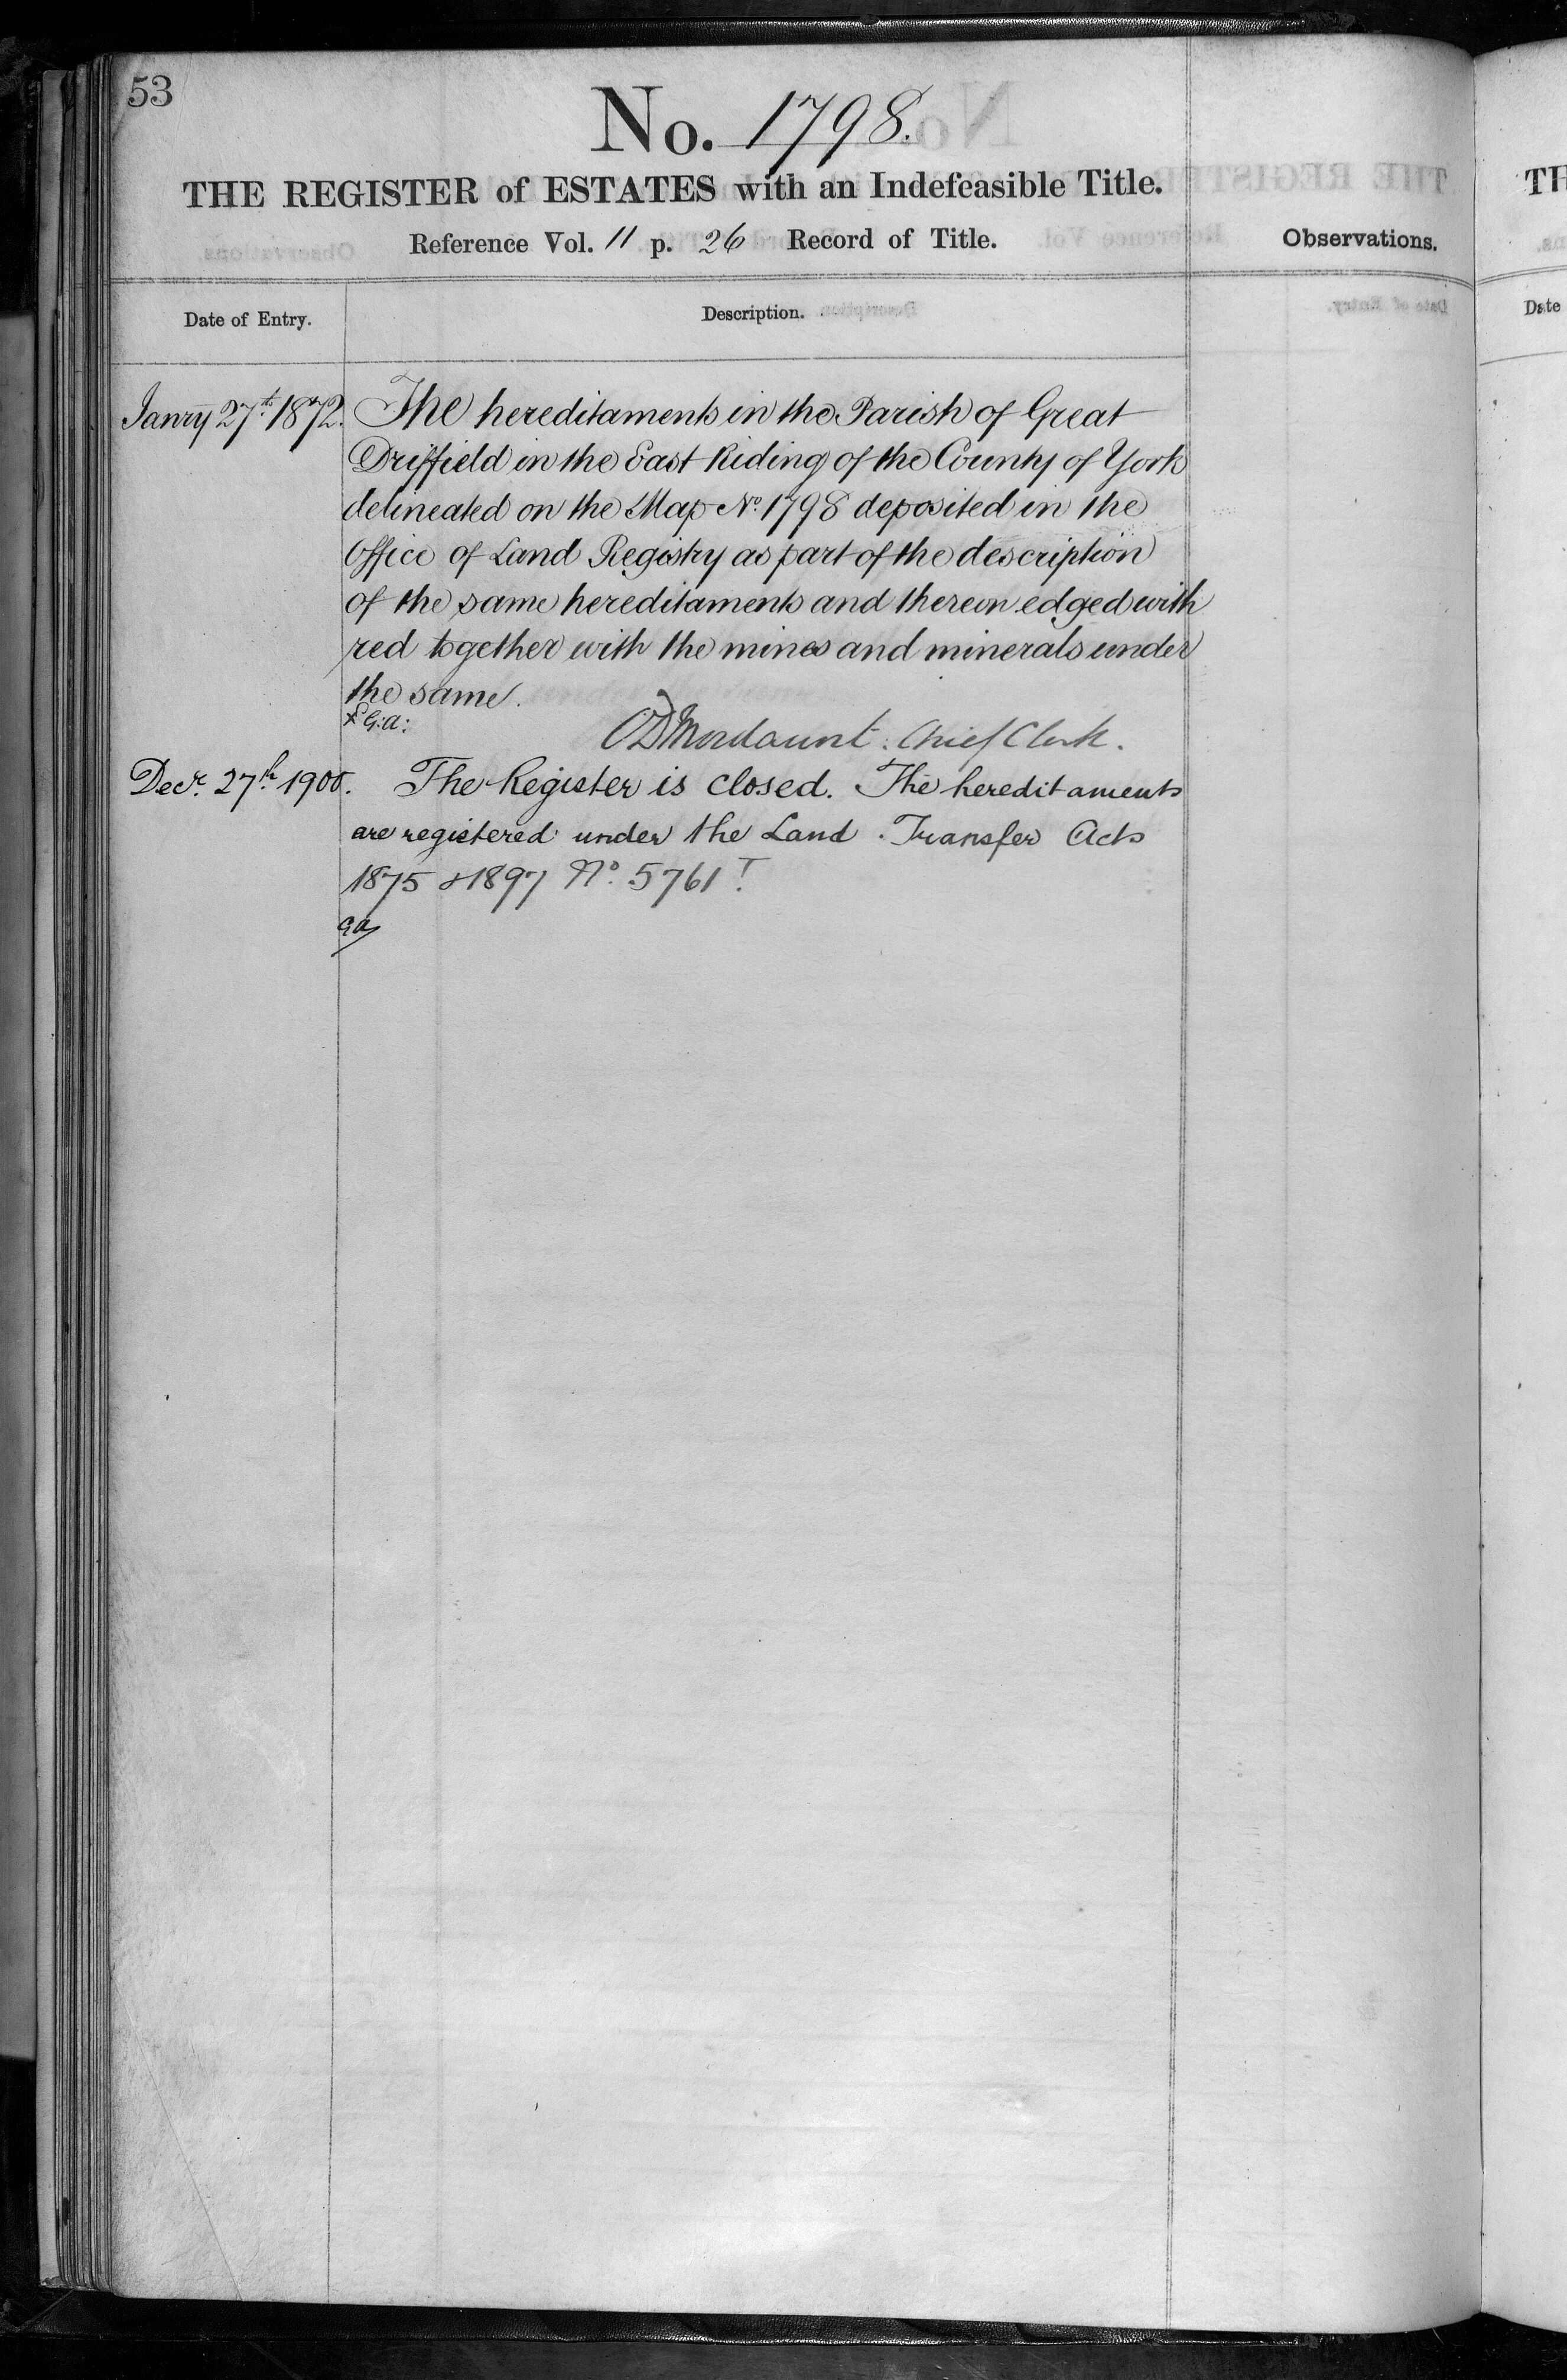 53
No. 1798.
THE REGISTER of ESTATES with an Indefeasible Title.
Reference Vol. 11 p. 26 Record of Title.
Observations.
Date of Entry.
Description.
Janry 27th 1872.
The hereditaments in the Parish of Great
Driffield in the East Riding of the County of York
delineated on the Map No. 1798 deposited in the
Office of Land Registry as part of the description
of the same hereditaments and thereon edged with
red together with the mines and minerals under
the same.
G:a:
Mordaunt. Chief Clerk.
Decr. 27th 1900. The Register is closed. The hereditaments
are registered under the Land Transfer Acts
1875 & 1897 No. 5761
ga
TH
Date